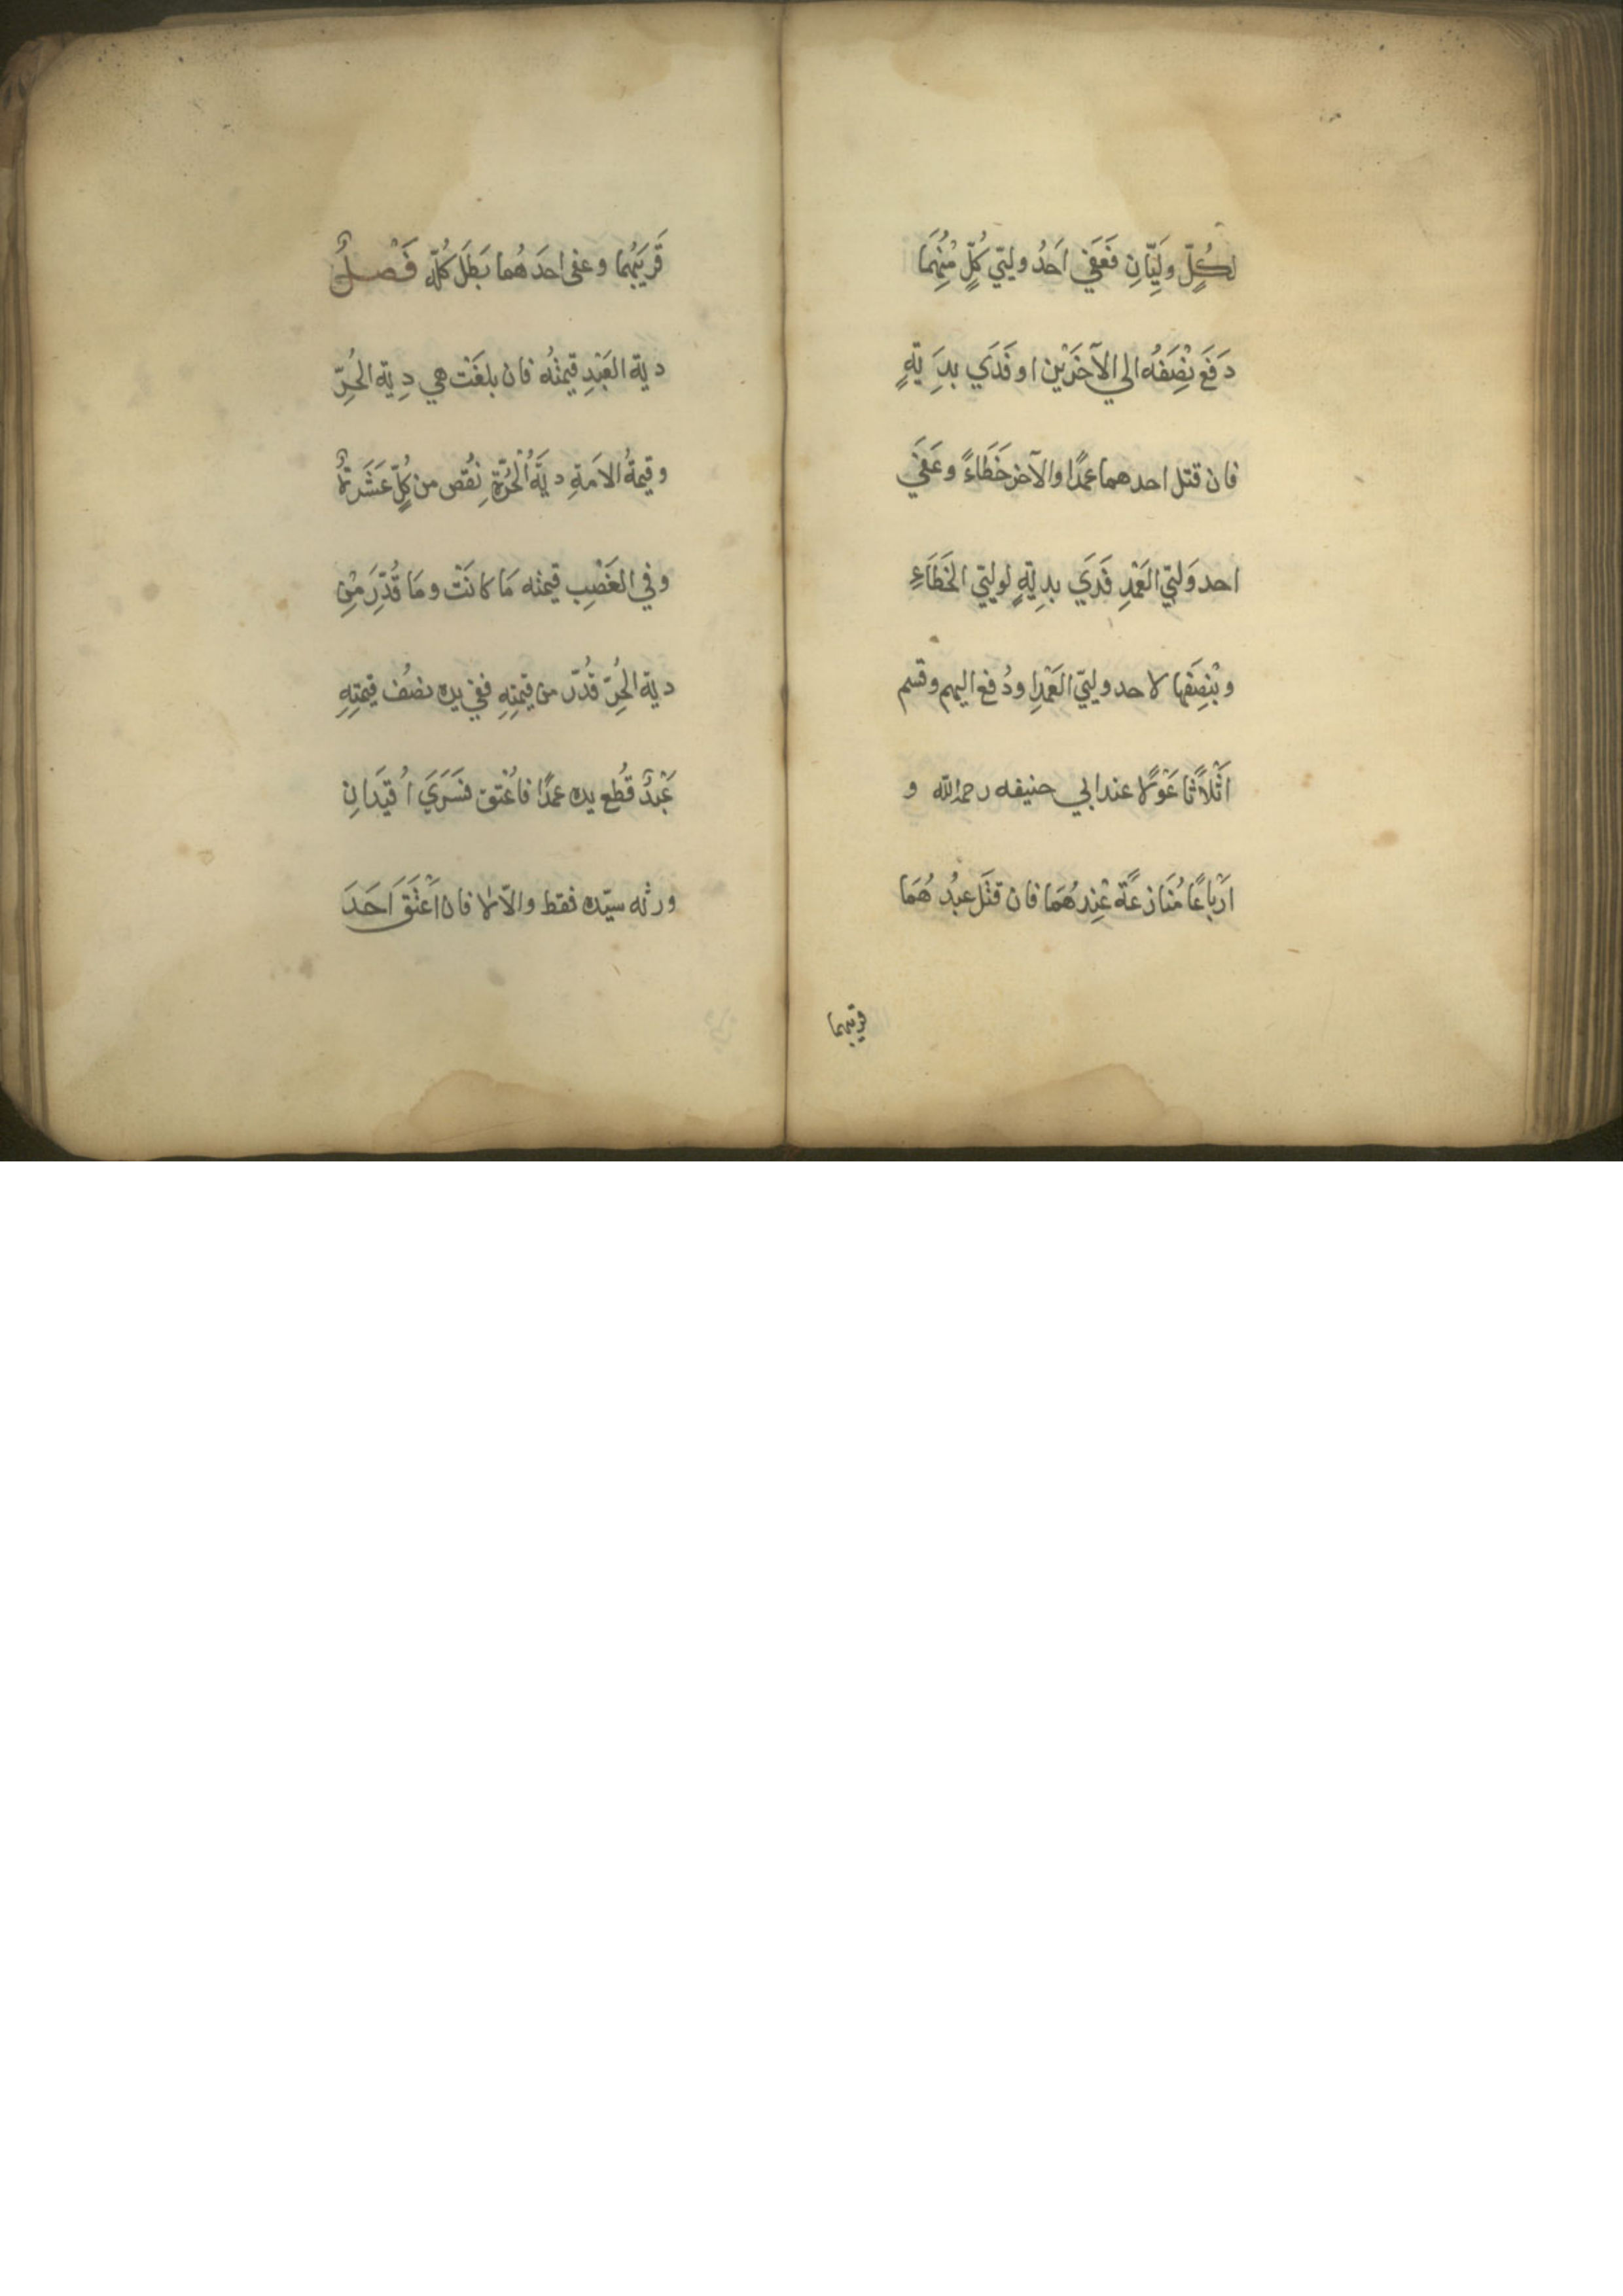 لكُلٍّ وَلِيَّانِ فَعَفَي اَحَدُ وليّي كُلٍّ مِنْهُمَا
دَفَعَ نِصْفَهُ الي الآخَرَيْنِ او فَدَي بِدِيَةٍ
فان قتل احدهما عمدًا والآخر خَطَاءً وعَفَي
احد وَليّي العَمْدِ فَدَي بدِيَةٍ لوليّي الخَطَاءِ
وبِنِصْفِها لاحد وليّي العَمْدِ او دُفع اليهم وقسم
اَثْلاَثًا عَوْلًا عند ابي حنيفه رحمه الله و
اَرْبَاعًا مُنَازعَةً عِنْدهُمَا فان قتَل عبدُ هُمَا
قريبهما
قَرِيَبُهما وعفى احدَهُما بَطَلَ كُلُّه فَصْلٌ
دية العَبْدِ قيمتُه فان بلغَت هي دِية الحُرِّ
وقيمةُ الاَمَةِ ديَةَ الْحُرَّةِ نِقُص من كُلٍّ عَشَرةٌ
وفي الغَصْبِ قيمته مَا كانَتْ ومَا قُدِّرَ مِنْ
دية الحُرِّ قُدّر من قِيمتِهِ ففي يده نصُف قيمتِهِ
عَبْدٌ قُطع يده عمدًا فاُعْتق فسَرَيَ اُقيَد انِ
ورثه سيّده فقط والاّ لا فان اَعْتَقَ اَحَدَ